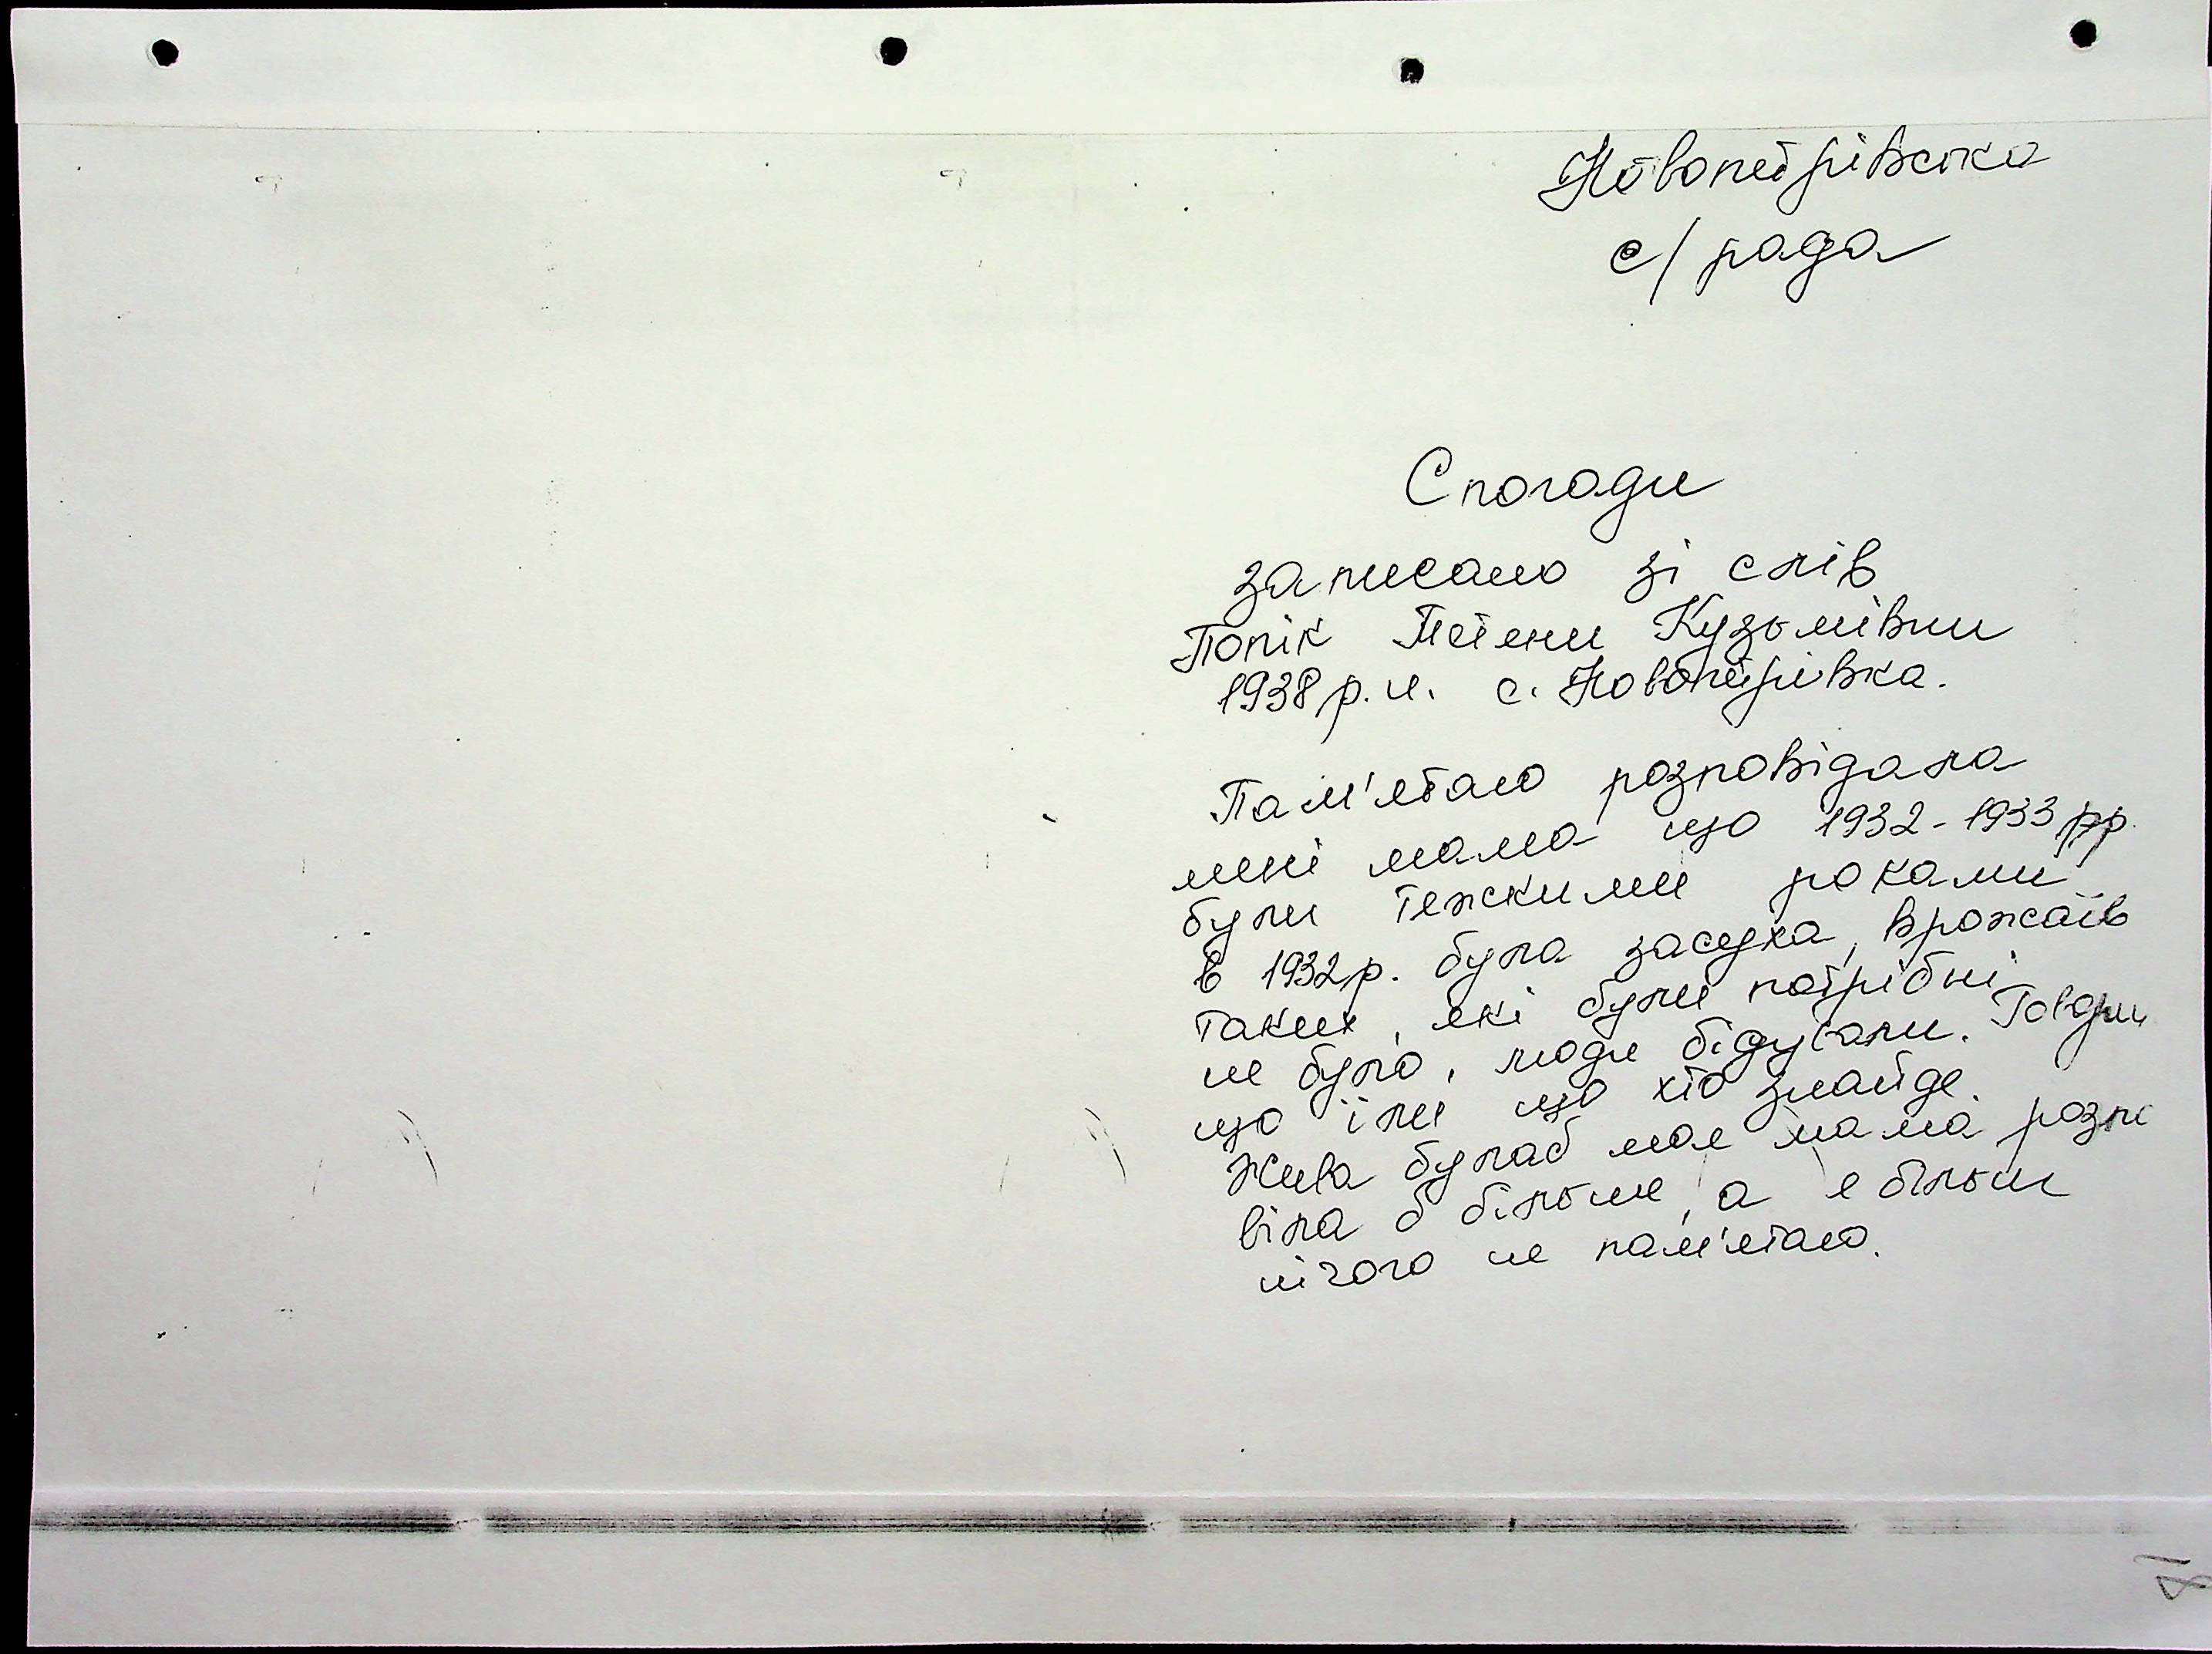 Новопетрівська
с/рада
Спогади
записано зі слів
Попік Тетени Кузьмівни
1938 р.н. с. Новопетрівка.
Пам'ятаю розповідала
мені мама що 1932-1933 рр.
були тяжкими роками
в 1932р. була засуха, врожаїв
таких, які були потрібні
не було, люди бідували.
що їли що хто знайде.
Жива булаб моя мама розпо
віла б більше, а я більш
нічого не пам'ятаю.
18